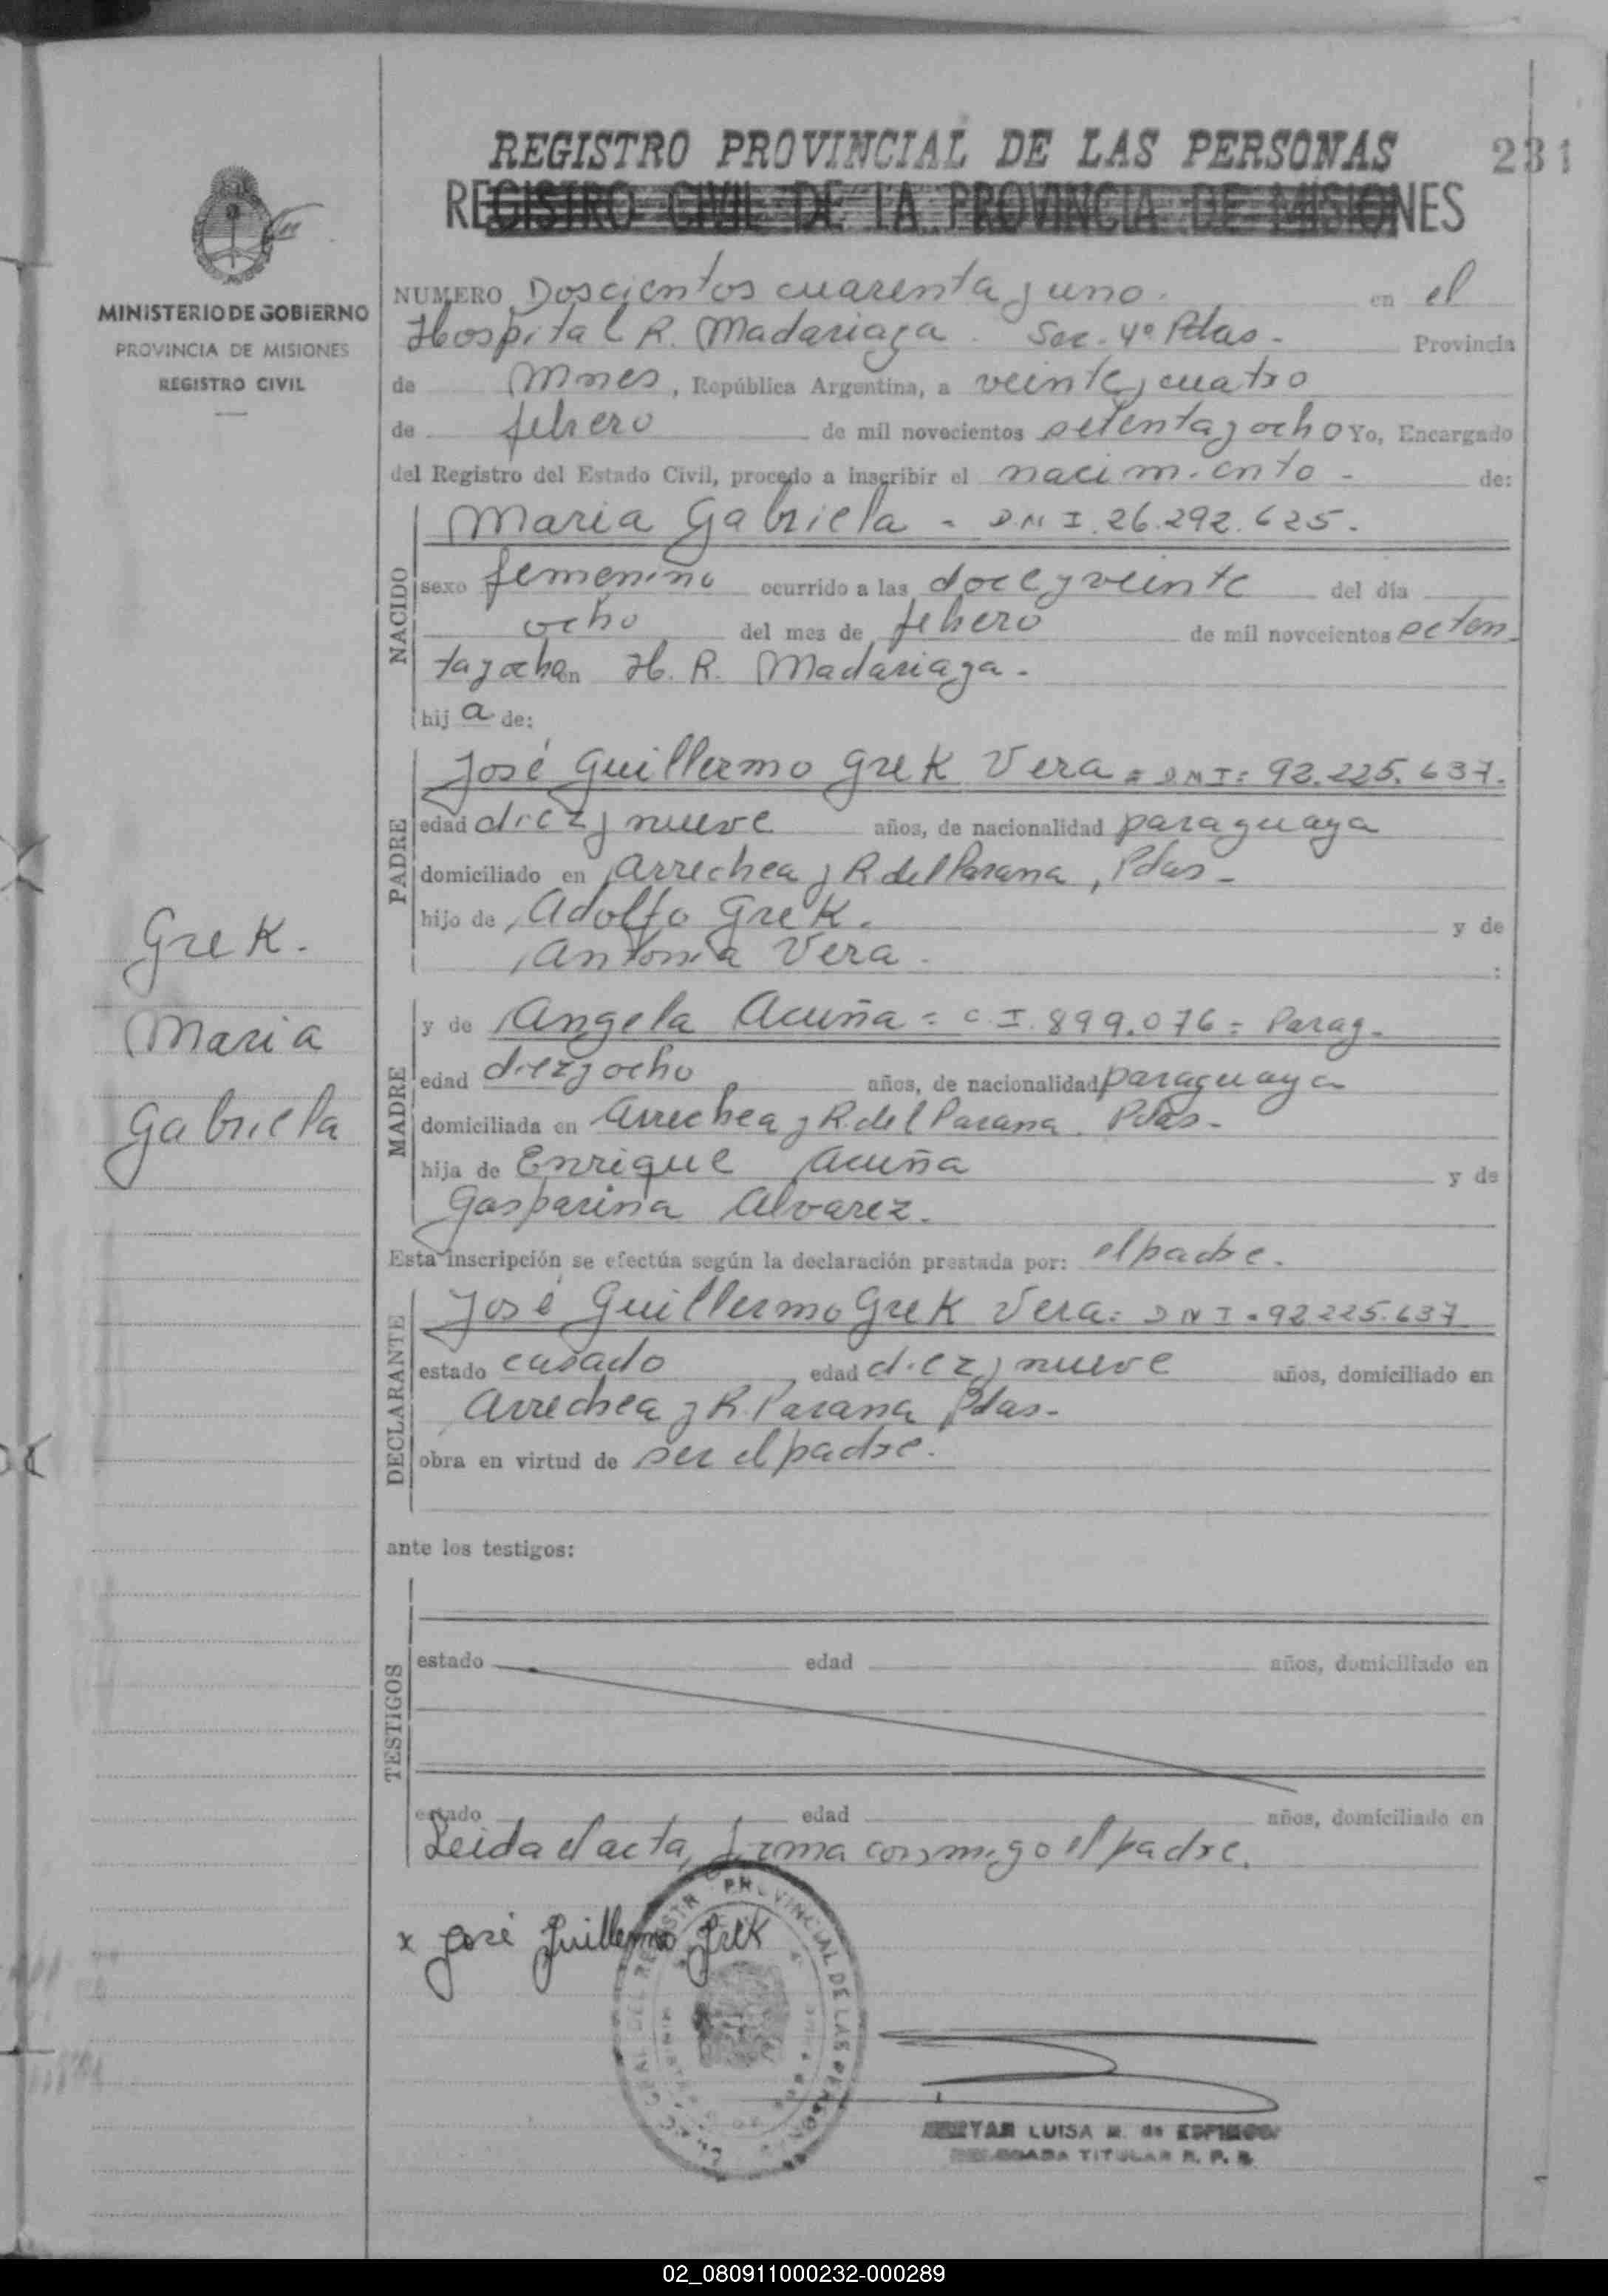 REGISTRO PROVINCIAL DE LAS PERSONAS
231
REGISTRO CIVIL DE LA PROVINCIA DE MISIONES
MINISTERIO DE GOBIERNO
PROVINCIA DE MISIONES
REGISTRO CIVIL
NUMERO Doscientos cuarenta y uno. en el
Hospital R. Madariaga. Sec. 4º Pdas. Provincia
de Mnes, República Argentina, a veinte y cuatro
de febrero de mil novecientos setenta y ocho Yo, Encargado
del Registro del Estado Civil, procedo a inscribir el nacimiento de:
NACIDO
Maria Gabriela - DNI. 26.292.625.
sexo femenino ocurrido a las doce y veinte del día
ocho del mes de febrero de mil novecientos seten
ta y ocho en H. R. Madariaga.
hij a de:
PADRE
José Guillermo Grek Vera = DNI: 92.225.637.
edad diez y nueve años, de nacionalidad paraguaya
domiciliado en Arrechea y R del Parana, Pdas -
hijo de Adolfo Grek. y de
Antonia Vera.
:
MADRE
y de Angela Acuña = C.I. 899.076 = Parag.
edad diez y ocho años, de nacionalidad paraguaya
domiciliada en Arrechea y R. del Parana. Pdas -
hija de Enrique Acuña y de
Gasparina Alvarez.
Esta inscripción se efectúa según la declaración prestada por: el padre.
DECLARANTE
José Guillermo Grek Vera: DNI. 92.225.637
estado casado edad diez y nueve años, domiciliado en
Arrechea y R. Parana Pdas -
obra en virtud de ser el padre.
ante los testigos:
TESTIGOS
estado edad años, domiciliado en
estado edad años, domiciliado en
Leida el acta, firma conmigo el padre.
x José Guillermo Grek
LUISA M. de
TITULAR R. P. P.
Grek.
Maria
Gabriela
02_080911000232-000289